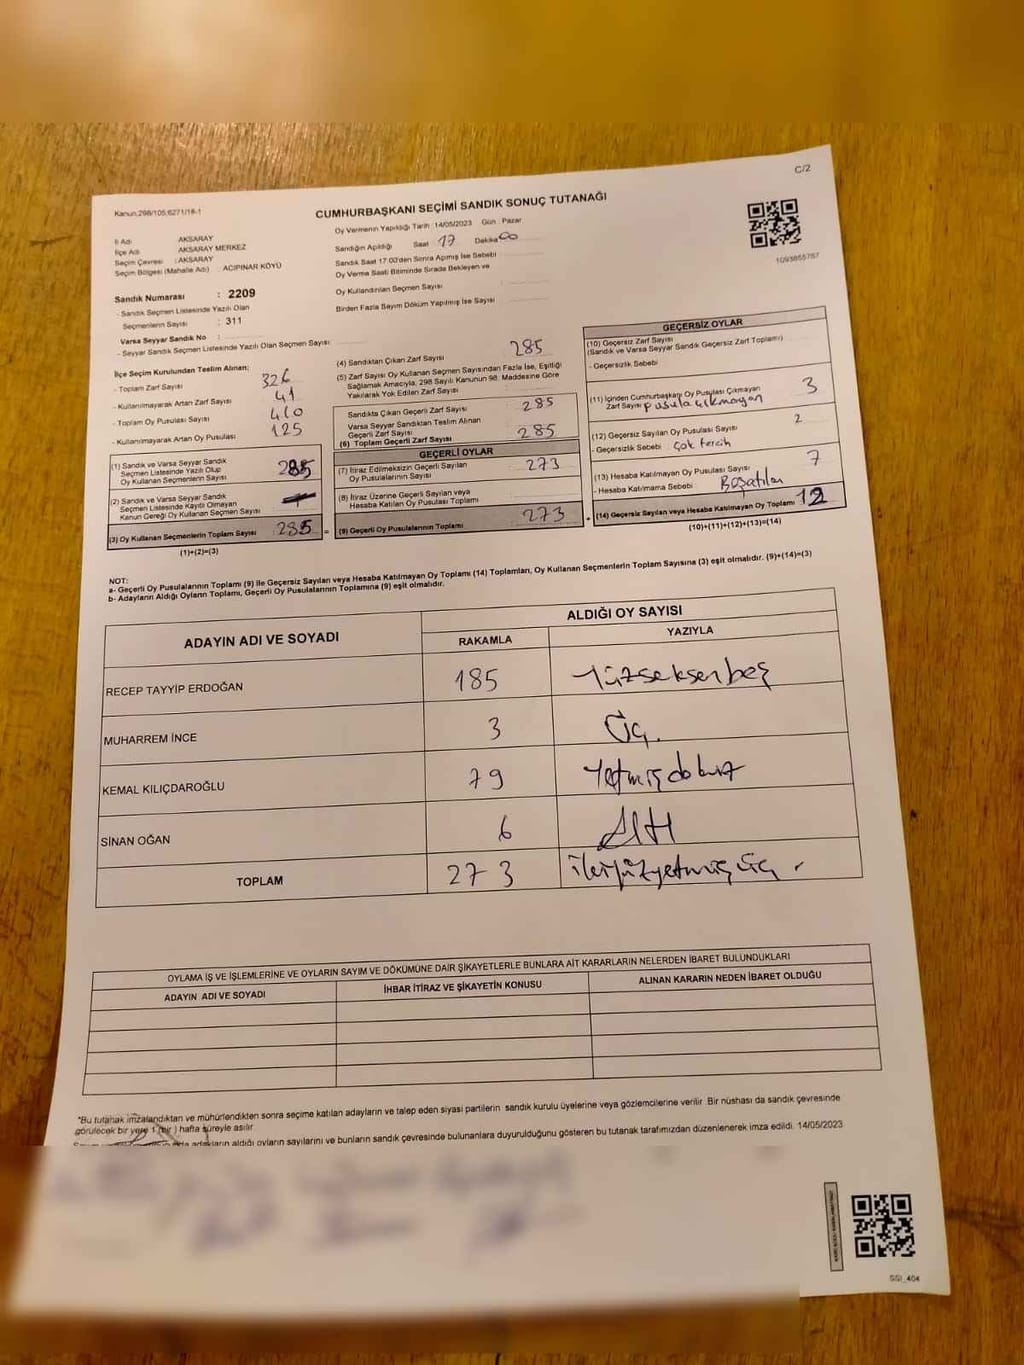 C/2
Kanun;298/105;6271/18-1
CUMHURBAŞKANI SEÇİMİ SANDIK SONUÇ TUTANAĞI
1093855787
İl Adı AKSARAY
İlçe Adı AKSARAY MERKEZ
Seçim Çevresi : AKSARAY
Seçim Bölgesi (Mahalle Adı) : ACIPINAR KÖYÜ
Sandık Numarası : 2209
- Sandık Seçmen Listesinde Yazılı Olan
Seçmenlerin Sayısı : 311
Varsa Seyyar Sandık No :
- Seyyar Sandık Seçmen Listesinde Yazılı Olan Seçmen Sayısı:
Oy Vermenin Yapıldığı Tarih : 14/05/2023 Gün : Pazar
Sandığın Açıldığı Saat 17 Dakika 00
Sandık Saat 17:00'den Sonra Açılmış İse Sebebi
Oy Verme Saati Bitiminde Sırada Bekleyen ve
Oy Kullandırılan Seçmen Sayısı :
Birden Fazla Sayım Döküm Yapılmış İse Sayısı :
İlçe Seçim Kurulundan Teslim Alınan;
- Toplam Zarf Sayısı 326
- Kullanılmayarak Artan Zarf Sayısı 41
- Toplam Oy Pusulası 410
- Kullanılmayarak Artan Oy Pusulası 125
(1) Sandık ve Varsa Seyyar Sandık
Seçmen Listesinde Yazılı Olup
Oy Kullanan Seçmenlerin Sayısı 285
(2) Sandık ve Varsa Seyyar Sandık
Seçmen Listesinde Kayıtlı Olmayan
Kanun Gereği Oy Kullanan Seçmen Sayısı
(3) Oy Kullanan Seçmenlerin Toplam Sayısı 285
(1)+(2)=(3)
(4) Sandıktan Çıkan Zarf Sayısı 285
(5) Zarf Sayısı Oy Kullanan Seçmen Sayısından Fazla İse, Eşitliği
Sağlamak Amacıyla, 298 Sayılı Kanunun 98. Maddesine Göre
Yakılarak Yok Edilen Zarf Sayısı :
Sandıkta Çıkan Geçerli Zarf Sayısı 285
Varsa Seyyar Sandıktan Teslim Alınan
Geçerli Zarf Sayısı
(6) Toplam Geçerli Zarf Sayısı 285
GEÇERLİ OYLAR
(7) İtiraz Edilmeksizin Geçerli Sayılan
Oy Pusulalarının Sayısı 273
(8) İtiraz Üzerine Geçerli Sayılan veya
Hesaba Katılan Oy Pusulası Toplamı
(9) Geçerli Oy Pusulalarının Toplamı 273
GEÇERSİZ OYLAR
(10) Geçersiz Zarf Sayısı
(Sandık ve Varsa Seyyar Sandık Geçersiz Zarf Toplamı)
- Geçersizlik Sebebi
(11) İçinden Cumhurbaşkanı Oy Pusulası Çıkmayan
Zarf Sayısı pusula çıkmayan 3
(12) Geçersiz Sayılan Oy Pusulası Sayısı 2
- Geçersizlik Sebebi : çok tercih
(13) Hesaba Katılmayan Oy Pusulası Sayısı 7
- Hesaba Katılmama Sebebi : Boşatılan
(14) Geçersiz Sayılan veya Hesaba Katılmayan Oy Toplamı 12
(10)+(11)+(12)+(13)=(14)
NOT:
a- Geçerli Oy Pusulalarının Toplamı (9) İle Geçersiz Sayılan veya Hesaba Katılmayan Oy Toplamı (14) Toplamları, Oy Kullanan Seçmenlerin Toplam Sayısına (3) eşit olmalıdır. (9)+(14)=(3)
b- Adayların Aldığı Oyların Toplamı, Geçerli Oy Pusulalarının Toplamına (9) eşit olmalıdır.
ADAYIN ADI VE SOYADI
ALDIĞI OY SAYISI
RAKAMLA YAZIYLA
RECEP TAYYİP ERDOĞAN 185 Yüzseksenbeş
MUHARREM İNCE 3 Üç.
KEMAL KILIÇDAROĞLU 79 Yetmişdokuz
SİNAN OĞAN 6 Altı
TOPLAM 273 ikiyüzyetmişüç
OYLAMA İŞ VE İŞLEMLERİNE VE OYLARIN SAYIM VE DÖKÜMÜNE DAİR ŞİKAYETLERLE BUNLARA AİT KARARLARIN NELERDEN İBARET BULUNDUKLARI
ADAYIN ADI VE SOYADI İHBAR İTİRAZ VE ŞİKAYETİN KONUSU ALINAN KARARIN NEDEN İBARET OLDUĞU
*Bu tutanak imzalandıktan ve mühürlendikten sonra seçime katılan adayların ve talep eden siyasi partilerin sandık kurulu üyelerine veya gözlemcilerine verilir. Bir nüshası da sandık çevresinde
görülecek bir yere 1 (bir ) hafta süreyle asılır.
adayların aldığı oyların sayılarını ve bunların sandık çevresinde bulunanlara duyurulduğunu gösteren bu tutanak tarafımızdan düzenlenerek imza edildi. 14/05/2023
SSI_404